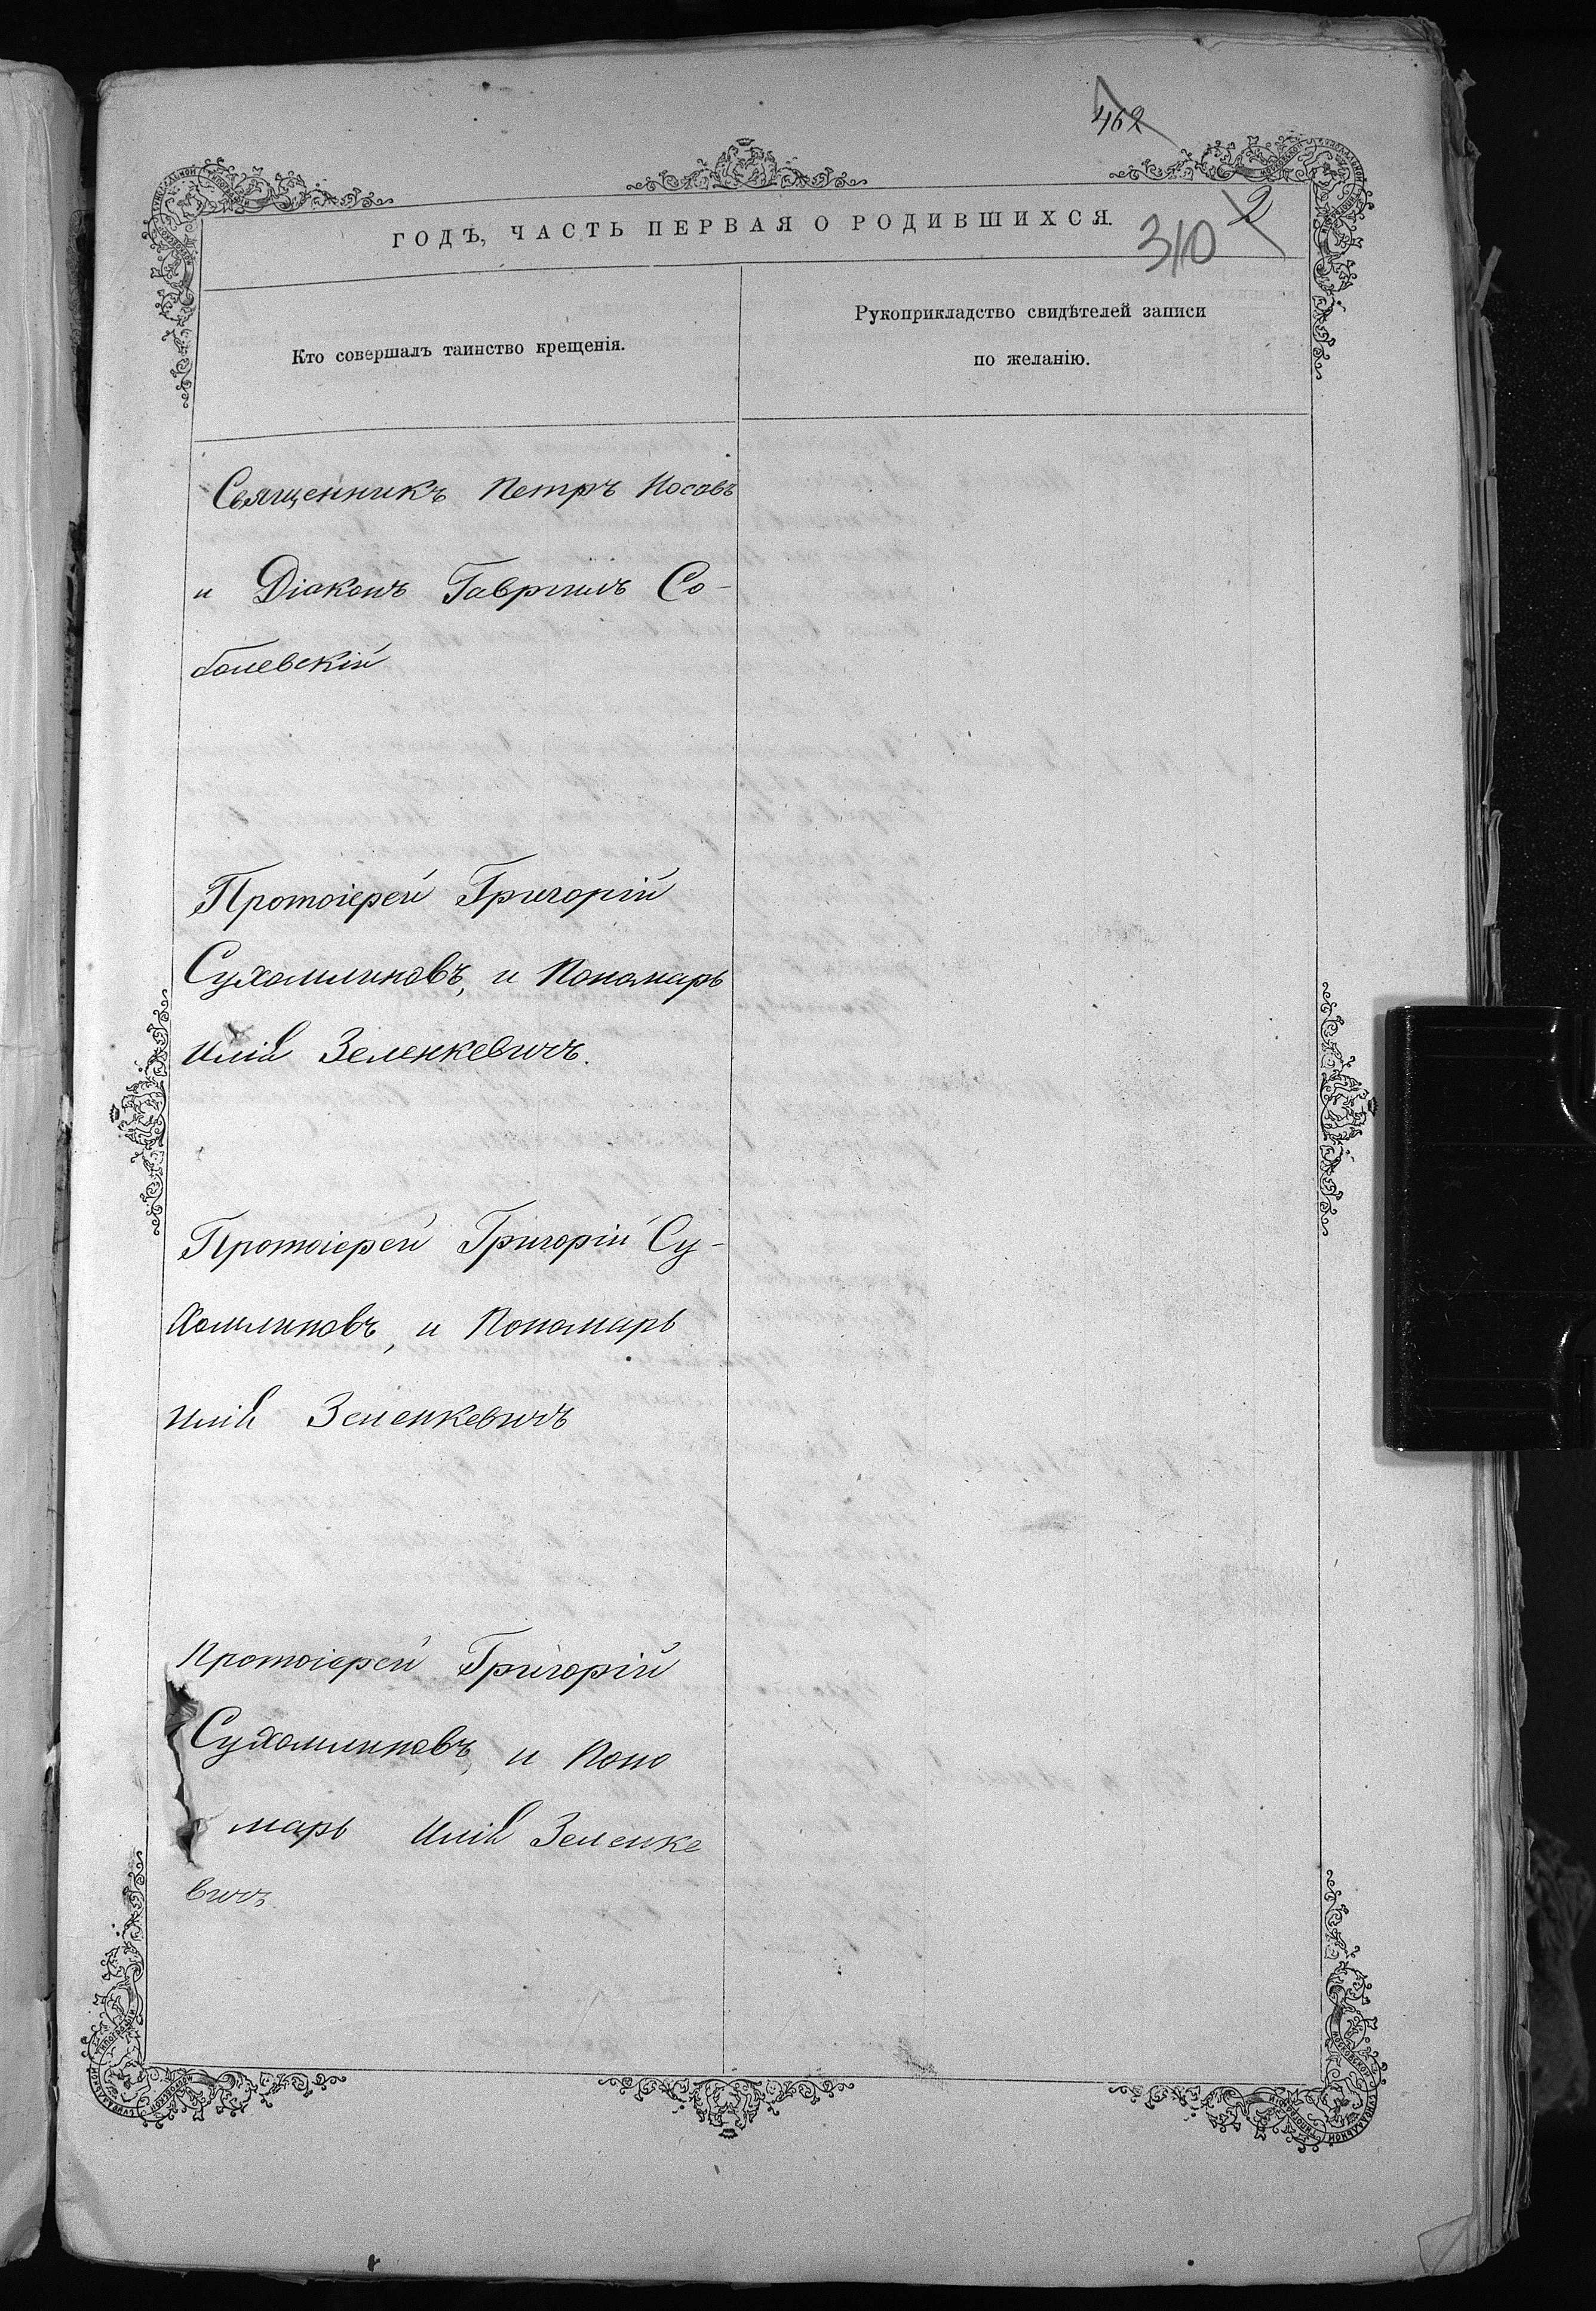 462
2
ГОДЪ, ЧАСТЬ ПЕРВАЯ О РОДИВШИХСЯ.
310
Кто совершалъ таинство крещенія.
Рукоприкладство свидѣтелей записи
по желанію.
Священникъ Петръ Носовъ
и Діаконъ Гавріилъ Со-
болевскій
Протоіерей Григорій
Сухомлиновъ, и Пономарь
Илія Зеленкевичъ.
Протоіерей Григорій Су-
хомлиновъ, и Пономарь
Илія Зеленкевичъ
Протоіерей Григорій
Сухомлиновъ, и Поно
марь Илія Зеленке
вичъ